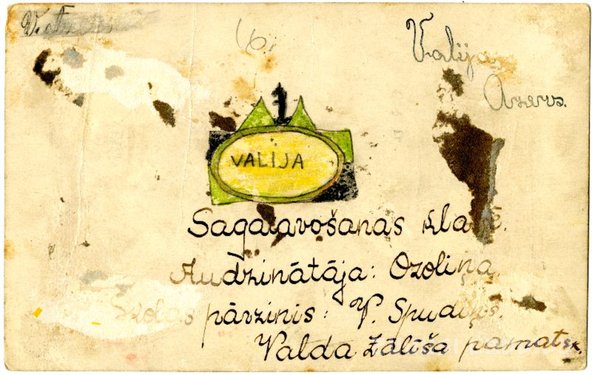 Valija
Azers.
1
VALIJA
Sagatavošanas klasē.
Audzinātāja: Ozoliņa
Skolas pārzinis: V. Spudiņš
Valda Zālīša pamatsk.